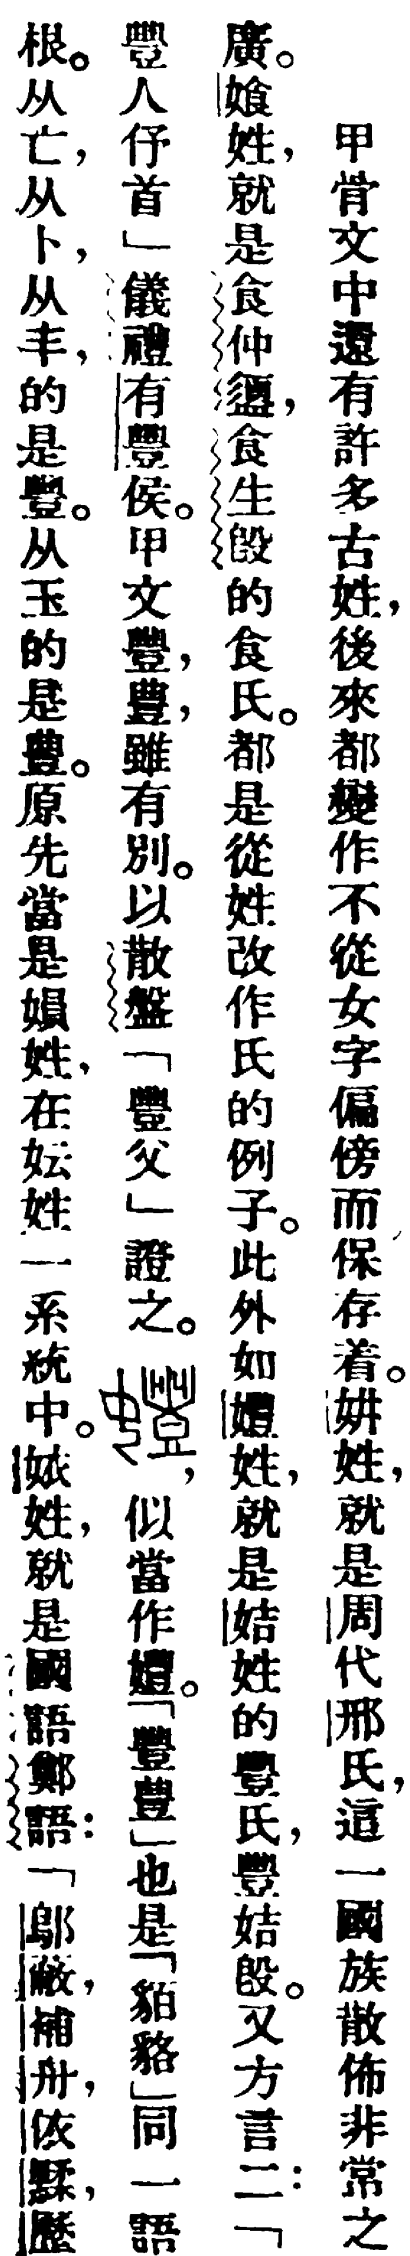 甲骨文中還有許多古姓，後來都變作不從女字偏傍而保存着。妌姓，就是周代邢氏，這一國族散佈非常之
廣。𡣙姓，就是食仲盨，食生𣪘的食氏。都是從姓改作氏的例子。此外如㜷姓，就是姞姓的豐氏，豐姞𣪘。又方言二：「
豐人仔首」儀禮有豐侯。甲文豐，豊，雖有別。以散盤「豐父」證之。，似當作㜷。「豐豊」也是「貊貉」同一語
根。从亡，从卜，从丰，的是豐。从玉的是豊。原先當是娟姓，在妘姓一系統中。㛄姓，就是國語鄭語：「鄔蔽，補舟，依𪏭，歷